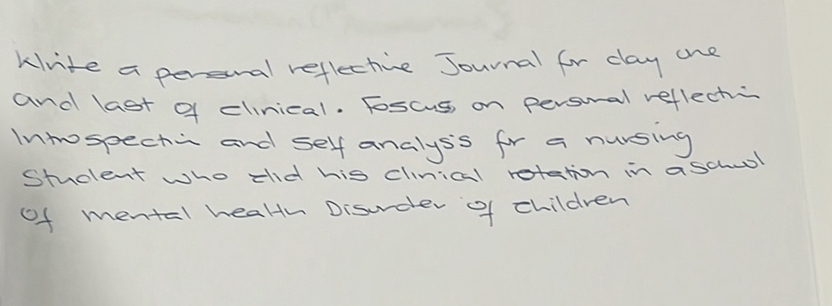 Write a personal reflective Journal for day one
and last of clinical. Foscus on personal reflection
Introspection and self analysis for a nursing
Student who did his clinical rotation in a school
of mental health Disorder of children